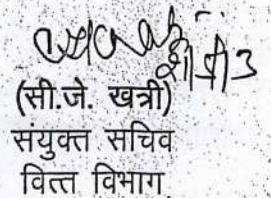 (सी.जे. खत्री)
संयुक्त सचिव
वित्त विभाग